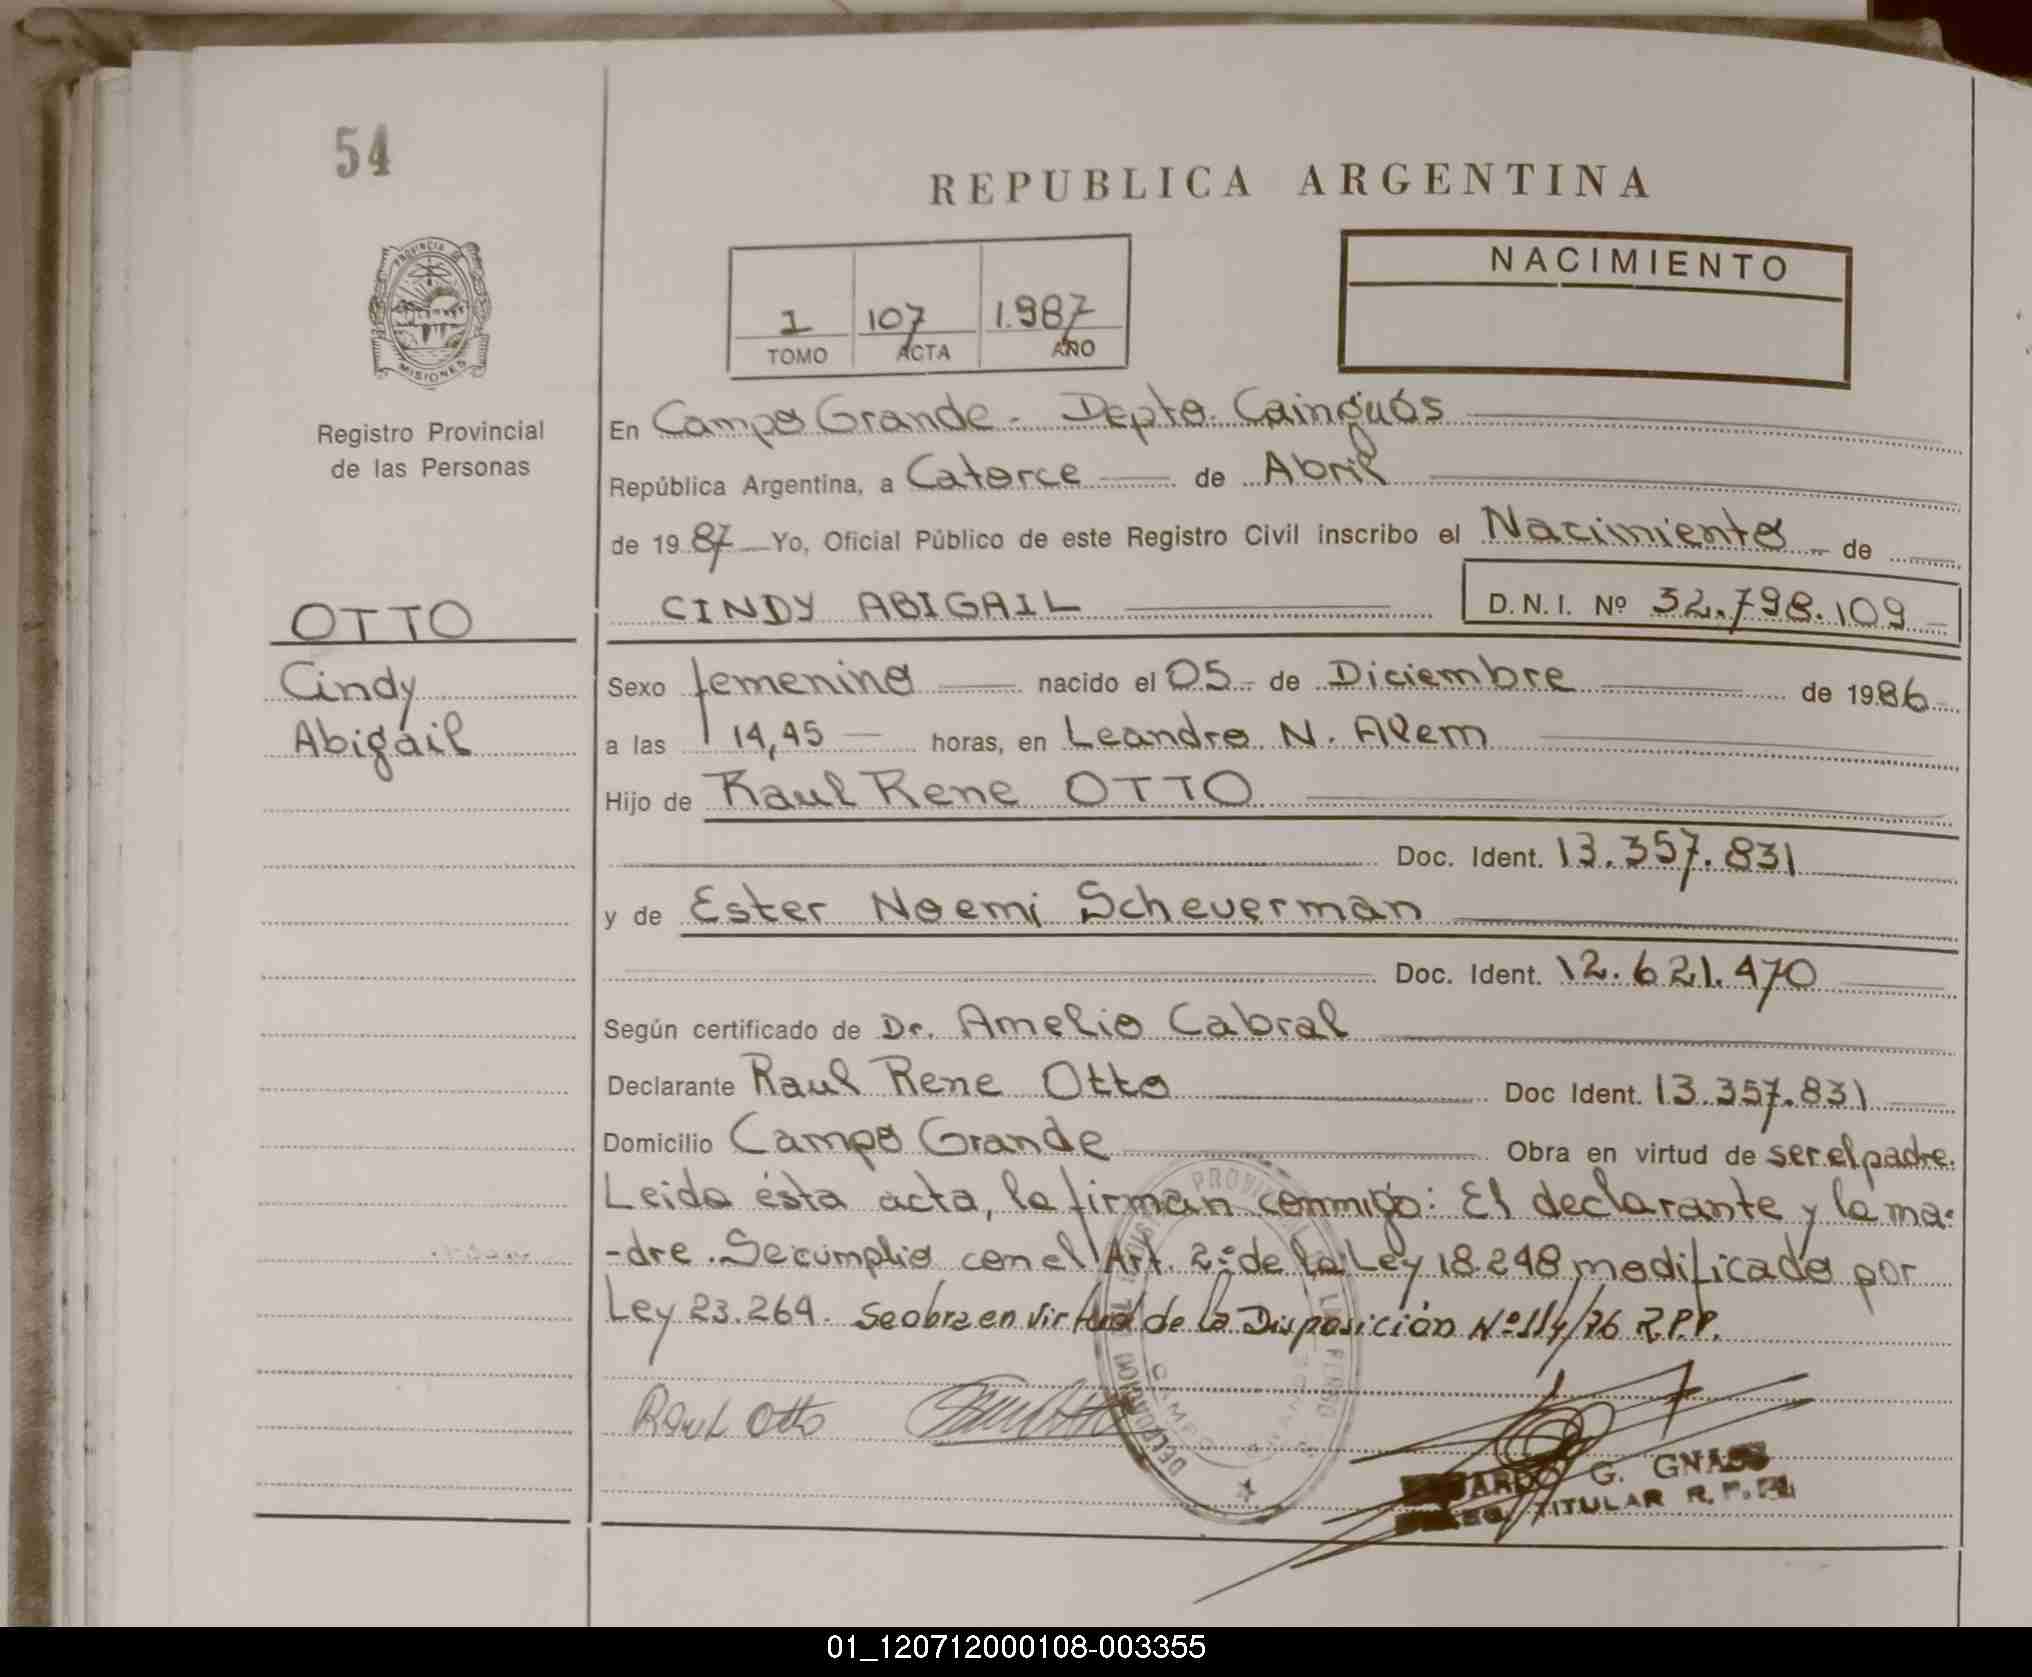 54
REPUBLICA ARGENTINA
NACIMIENTO
1 107 1.987
TOMO ACTA AÑO
PROVINCIA DE
MISIONES
Registro Provincial
de las Personas
En Campo Grande - Depto. Cainguás
República Argentina, a Catorce de Abril
de 1987 Yo, Oficial Público de este Registro Civil inscribo el Nacimiento de
CINDY ABIGAIL D.N.I. Nº 32.798.109
OTTO
Cindy
Abigail
Sexo femenino nacido el 05 de Diciembre de 1986
a las 14,45 horas, en Leandro N. Alem
Hijo de Raul Rene OTTO
Doc. Ident. 13.357.831
y de Ester Noemi Scheuerman
Doc. Ident. 12.621.470
Según certificado de Dr. Amelio Cabral
Declarante Raul Rene Otto Doc Ident. 13.357.831
Domicilio Campo Grande Obra en virtud de ser el padre.
Leida ésta acta, la firman conmigo: El declarante y la ma-
-dre. Se cumplio con el Art. 2º de la Ley 18.248 modificado por
Ley 23.264. Se obra en virtud de la Disposición Nº 114/76 R.P.P.
Raul Otto
CAMPO GRANDE
G. GNASS
TITULAR R.P.P.
01_120712000108-003355